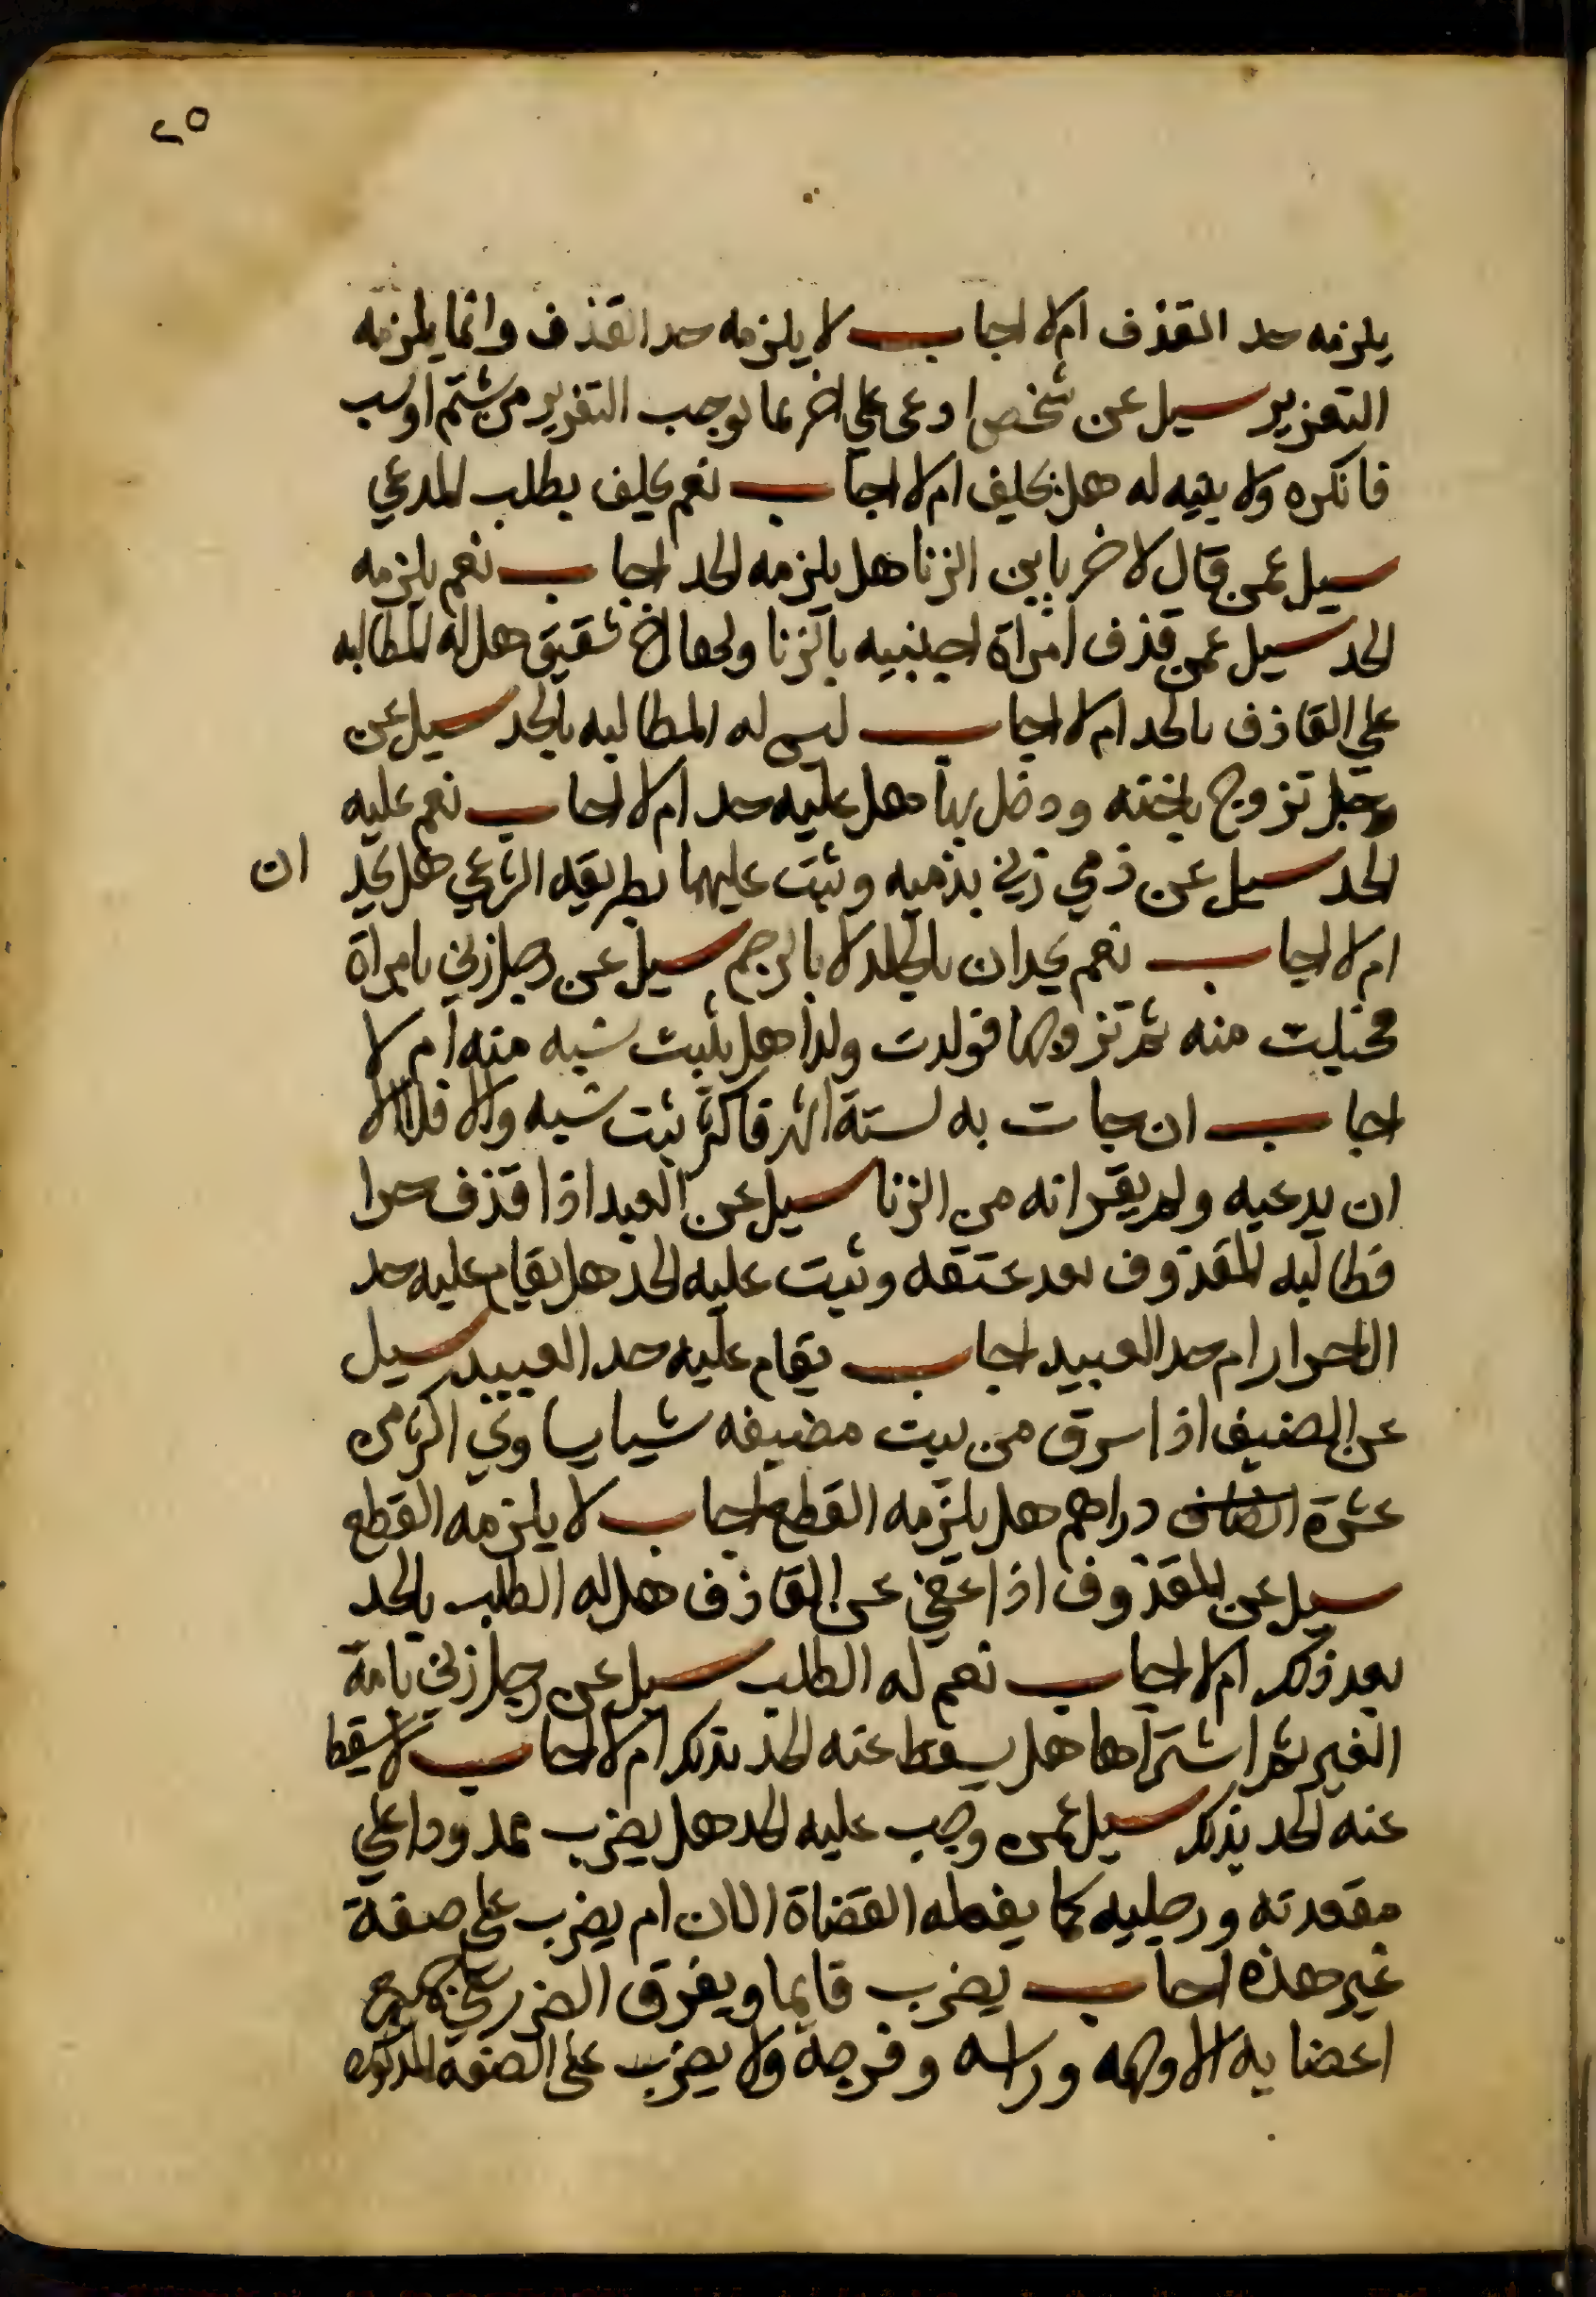 ٢٥
يلزمه حد القذف ام لا اجاب لا يلزمه حد القذف وانما يلزمه
التعزير سيل عن شخص ادعى علي اخر بما يوجب التعزير من شتم اوسب
فانكره ولا بينيه له هل يحلف ام لا اجاب نعم يحلف بطلب المدعي
سيل عمن قال لاخر يابن الزنا هل يلزمه الحد اجاب نعم يلزمه
الحد سيل عمن قذف امراة اجنبيه بالزنا ولها اخ شقيق هل له المطالبه
علي القاذف بالحد ام لا اجاب ليس له المطالبه بالحد سيل عن
رجل تزوج باخته ودخل بها هل عليه حد ام لا اجاب نعم عليه
الحد سيل عن ذمي زني بذميه وثبت عليهما بطريقه الشرعي هل يحد ان
ام لا اجاب نعم يحدان بالجلد لا بالرجم سيل عن رجل زني بامراة
فحبلت منه ثم تزوجها فولدت ولدا هل يثبت نسبه منه ام لا
اجاب ان جات به لستة اشهر فاكثر ثبت نسبه والا فلا الا
ان يدعيه ولم يقر انه من الزنا سيل عن العبد اذا قذف حرا
فطالبه المقذوف بعد عتقه وثبت عليه الحد هل يقام عليه حد
الاحرار ام حد العبيد اجاب يقام عليه حد العبيد سيل
عن الضيف اذا سرق من بيت مضيفه شيا يساوي اكثر من
عشرة دراهم هل يلزمه القطع اجاب لا يلزمه القطع
سيل عن المقذوف اذا عفي عن القاذف هل له الطلب بالحد
بعد ذلك ام لا اجاب نعم له الطلب سيل عن رجل زني بامة
الغير ثم اشتراها هل يسقط عنه الحد بذلك ام لا اجاب لا يسقط
عنه الحد بذلك سيل عمن وجب عليه الحد هل يضرب ممدودا علي
مقعدته ورجليه كما يفعله القضاة الان ام يضرب علي صفة
غير هذه اجاب يضرب قايما ويفرق الضرب علي جميع
اعضايه الا وجهه وراسه وفرجه ولا يضرب على الصفة المذكوره